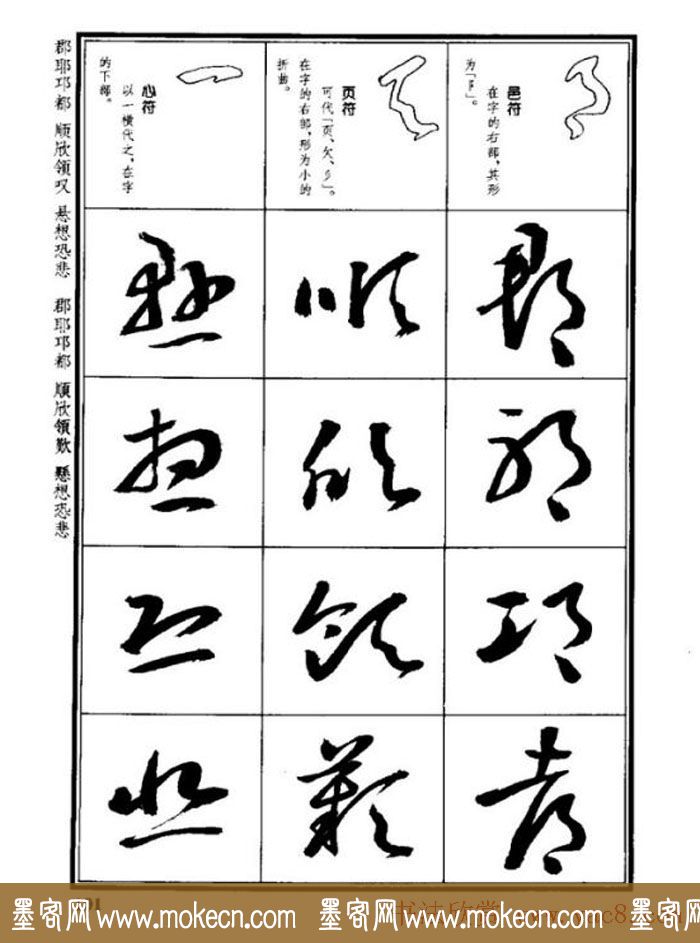 邑符
在字的右部，其形
为「阝」。
页符
可代「页、欠、彡」。
在字的右部，形为小的
折曲。
心符
以一横代之，在字
的下部。
郡 耶 邛 都
顺 欣 领 叹
悬 想 恐 悲
郡耶邛都 顺欣领叹 悬想恐悲 郡耶邛都 順欣領歎 懸想恐悲
墨客网 www.mokecn.com 墨客网 www.mokecn.com